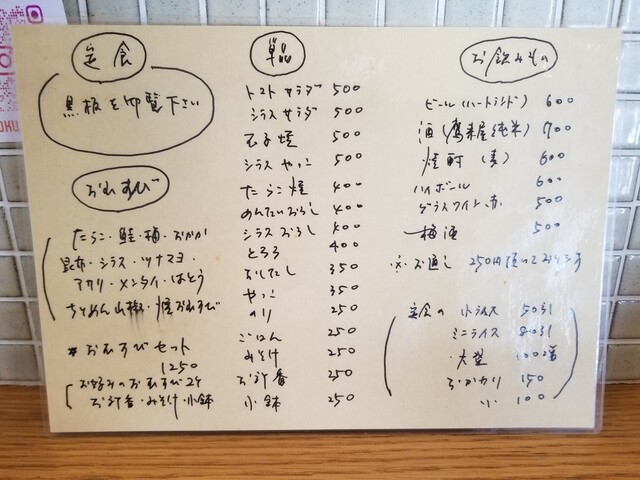 定食
黒板を御覧下さい
おむすび
たらこ・鮭・梅・おかか
昆布・シラス・ツナマヨ・
アカリ・メンタイ・はとう
ちりめん山椒・焼おむすび
*おむすびセット
1250
お好みのおむすび2ケ
お汁・香・みそ汁・小鉢
単品
トマトサラダ 500
シラスサラダ 500
玉子焼 500
シラスやっこ 500
たらこ焼 400
めんたいおろし 400
シラスおろし 400
とろろ 400
おひたし 350
やっこ 350
のり 250
ごはん 250
みそ汁 250
お新香 250
小鉢 250
お飲みもの
ビール(ハートランド) 600
酒(鷹来屋純米) 700
焼酎(麦) 600
ハイボール 600
グラスワイン赤 500
梅酒 500
※お通し250円頂いております
定食の小ライス 50引
ミニライス 80引
・大盛 100増
おかわり 150
〃小 100